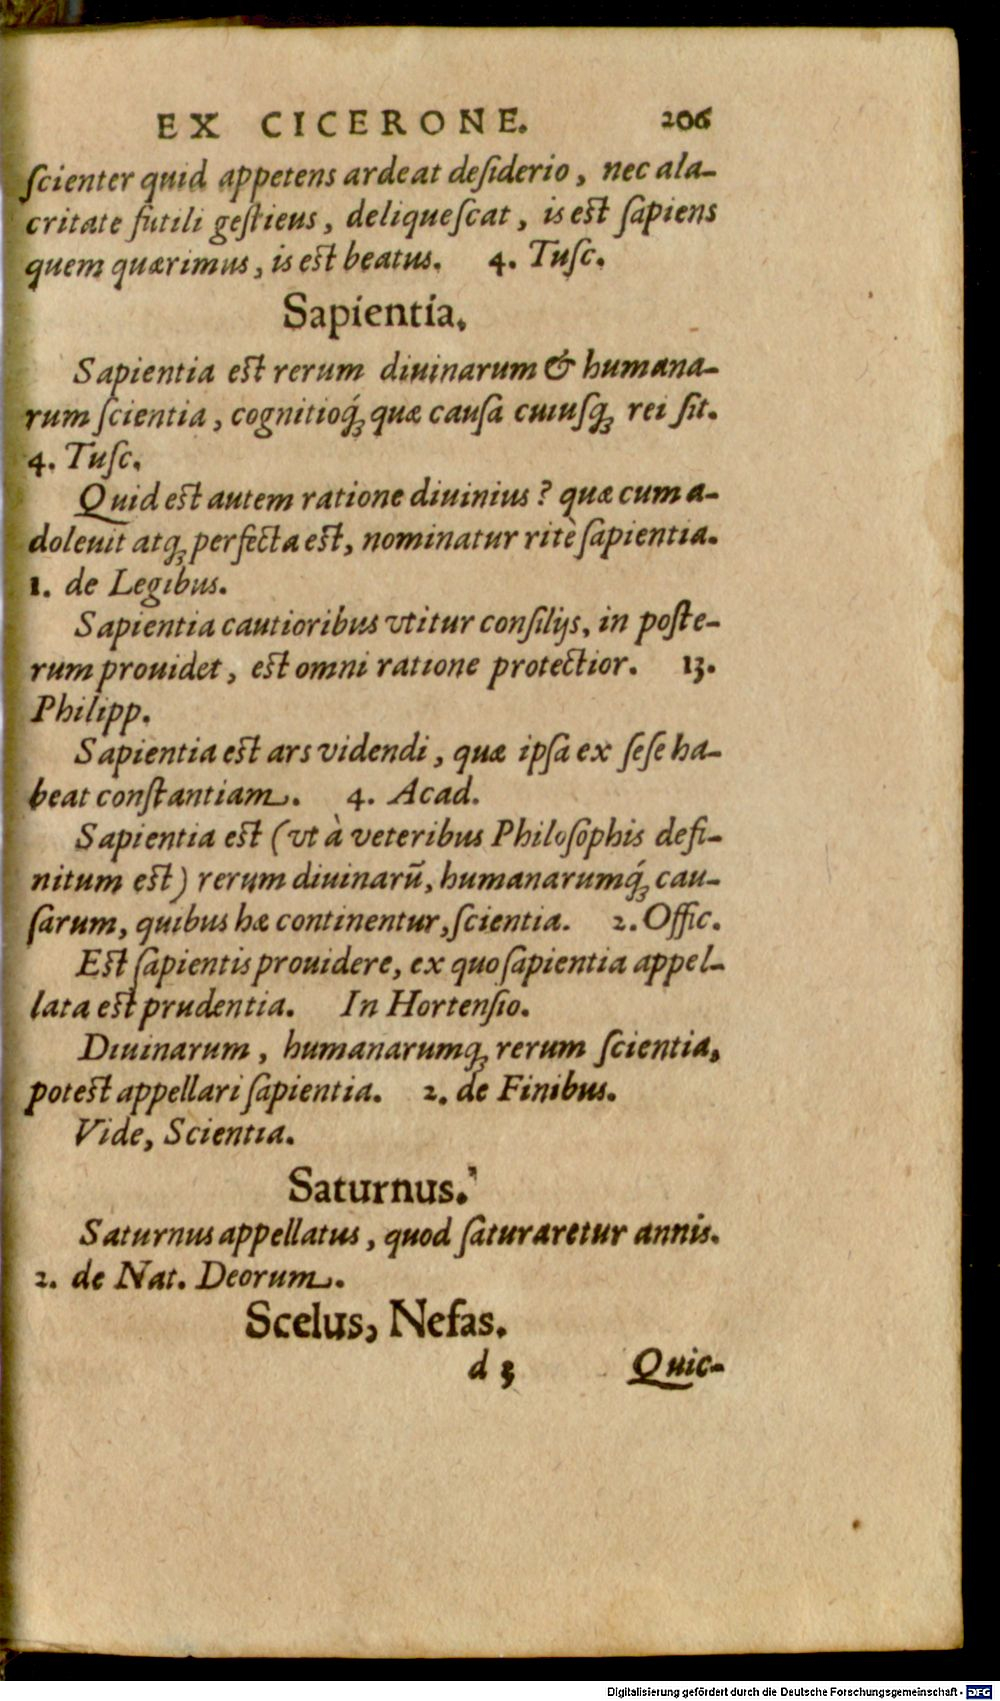 EX CICERONE. 206
ſcienter quid appetens ardeat deſiderio, nec ala-
critate futili geſtieus, deliqueſcat, is est ſapiens
quem quærimus, is est beatus. 4. Tuſc.
Sapientia.
Sapientia est rerum diuinarum & humana-
rum ſcientia, cognitioq́ꝫ quæ cauſa cuiuſqꝫ rei ſit.
4. Tuſc.
Quid est autem ratione diuinius? quæ cum a-
doleuit atqꝫ perfecta est, nominatur ritè ſapientia.
1. de Legibus.
Sapientia cautioribus vtitur conſilijs, in poſte-
rum prouidet, est omni ratione protectior. 13.
Philipp.
Sapientia est ars videndi, quæ ipſa ex ſeſe ha-
beat conſtantiam. 4. Acad.
Sapientia est (vt à veteribus Philoſophis defi-
nitum est) rerum diuinarũ, humanarumq́ꝫ cau-
ſarum, quibus hæ continentur, ſcientia. 2. Offic.
Est ſapientis prouidere, ex quo ſapientia appel-
lata est prudentia. In Hortenſio.
Diuinarum, humanarumqꝫ rerum ſcientia,
potest appellari ſapientia. 2. de Finibus.
Vide, Scientia.
Saturnus.
Saturnus appellatus, quod ſaturaretur annis.
2. de Nat. Deorum.
Scelus, Nefas.
d 3 Quic-
Digitalisierung gefördert durch die Deutsche Forschungsgemeinschaft - DFG